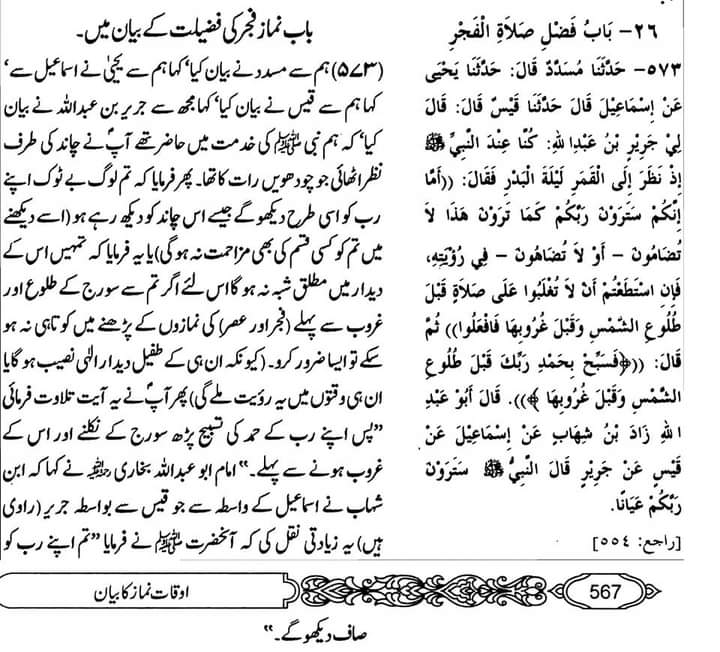 ٢٦- بَابُ فَضْلِ صَلاَةِ الْفَجْرِ
٥٧٣- حَدَّثَنَا مُسَدَّدٌ قَالَ: حَدَّثَنَا يَحْيَى
عَنْ إِسْمَاعِيْلَ قَالَ حَدَّثَنَا قَيْسٌ قَالَ: قَالَ
لِي جَرِيْرُ بْنُ عَبْدِ اللهِ: كُنَّا عِنْدَ النَّبِيِّ ﷺ
إِذْ نَظَرَ إِلَى الْقَمَرِ لَيْلَةَ الْبَدْرِ فَقَالَ: ((أَمَّا
إِنَّكُمْ سَتَرَوْنَ رَبَّكُمْ كَمَا تَرَوْنَ هَذَا لاَ
تُضَامُونَ - أَوْ لاَ تُضَاهُونَ - فِي رُؤْيَتِهِ،
فَإِنِ اسْتَطَعْتُمْ أَنْ لاَ تُغْلَبُوا عَلَى صَلاَةٍ قَبْلَ
طُلُوعِ الشَّمْسِ وَقَبْلَ غُرُوبِهَا فَافْعَلُوا)) ثُمَّ
قَالَ: ((﴿فَسَبِّحْ بِحَمْدِ رَبِّكَ قَبْلَ طُلُوعِ
الشَّمْسِ وَقَبْلَ غُرُوبِهَا﴾)). قَالَ أَبُو عَبْدِ
اللهِ زَادَ بْنُ شِهَابٍ عَنْ إِسْمَاعِيْلَ عَنْ
قَيْسٍ عَنْ جَرِيْرٍ قَالَ النَّبِيُّ ﷺ سَتَرَوْنَ
رَبَّكُمْ عَيَانًا.
[راجع: ٥٥٤]
باب نماز فجر کی فضیلت کے بیان میں۔
(۵۷۳) ہم سے مسدد نے بیان کیا، کہا ہم سے یحییٰ نے اسماعیل سے،
کہا ہم سے قیس نے بیان کیا، کہا مجھ سے جریر بن عبداللہ نے بیان
کیا، کہ ہم نبی ﷺ کی خدمت میں حاضر تھے آپؐ نے چاند کی طرف
نظر اٹھائی جو چودھویں رات کا تھا۔ پھر فرمایا کہ تم لوگ بے ٹوک اپنے
رب کو اسی طرح دیکھو گے جیسے اس چاند کو دیکھ رہے ہو (اسے دیکھنے
میں تم کو کسی قسم کی بھی مزاحمت نہ ہوگی) یا یہ فرمایا کہ تمہیں اس کے
دیدار میں مطلق شبہ نہ ہوگا اس لئے اگر تم سے سورج کے طلوع اور
غروب سے پہلے (فجر اور عصر) کی نمازوں کے پڑھنے میں کوتاہی نہ ہو
سکے تو ایسا ضرور کرو۔ (کیونکہ ان ہی کے طفیل دیدار الٰہی نصیب ہوگا یا
ان ہی وقتوں میں یہ رؤیت ملے گی) پھر آپؐ نے یہ آیت تلاوت فرمائی
"پس اپنے رب کے حمد کی تسبیح پڑھ سورج کے نکلنے اور اس کے
غروب ہونے سے پہلے۔" امام ابو عبداللہ بخاری رحمہ اللہ نے کہا کہ ابن
شہاب نے اسماعیل کے واسطہ سے جو قیس سے بواسطہ جریر (راوی
ہیں) یہ زیادتی نقل کی کہ آنحضرت ﷺ نے فرمایا "تم اپنے رب کو
567
اوقات نماز کا بیان
صاف دیکھو گے۔"